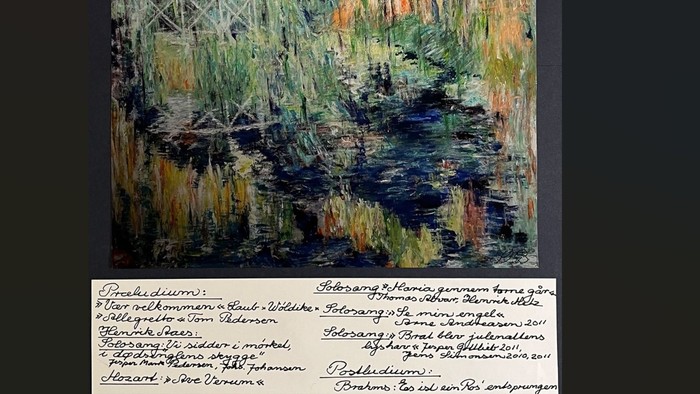 Præludium:
»Vær velkommen« Laub - Wöldike
»Allegretto« Tom Pedersen
Henrik Aaes:
Solosang: Vi sidder i mørket,
i dødsenglens skygge"
Jesper Mark Pedersen, Johs. Johansen
Mozart: »Ave Verum«
Solosang: "Maria gennem torne går"
Thomas Henrik
Solosang: »Se min engel«
Arne Andreasen 2011
Solosang: » Brat blev julenattens
byskær « Jesper Gottlieb 2011,
Jens Simonsen 2010, 2011
Postludium:
Brahms: "Es ist ein Ros' entsprungen